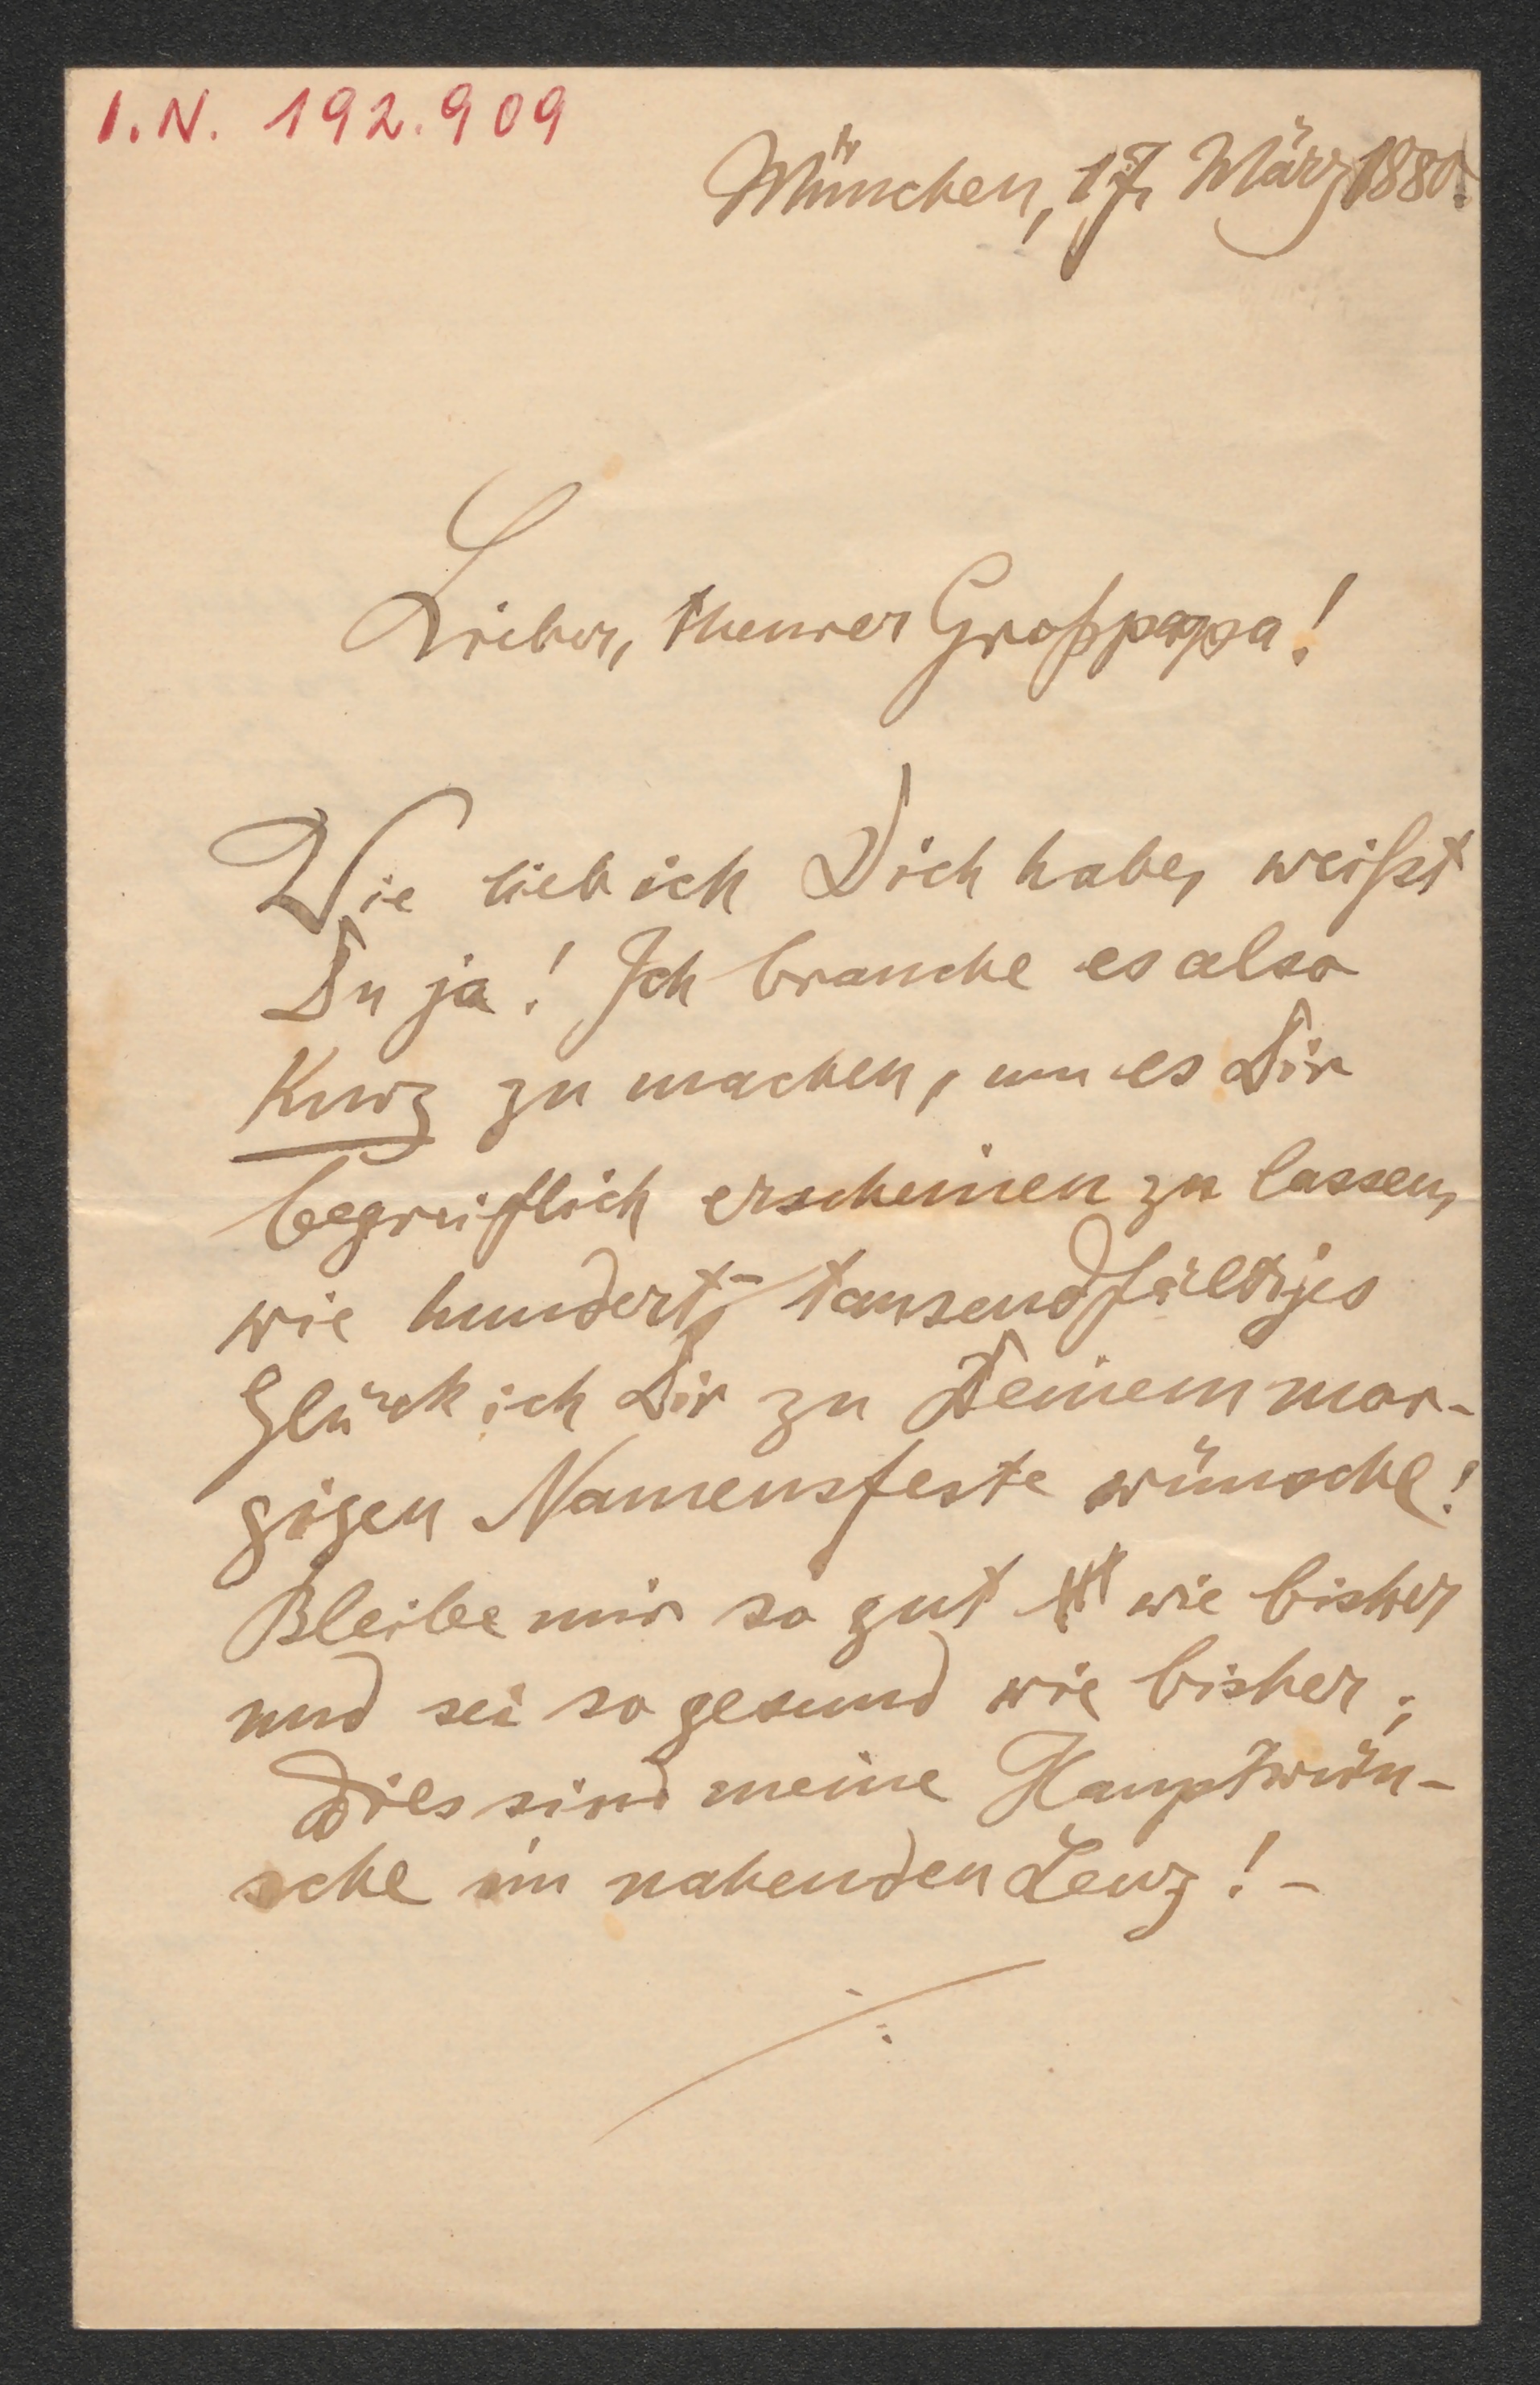 I.N. 192.909
München, 17. März 1880.
Lieber, theurer Großpapa!
Wie lieb ich Dich habe, weißt
Du ja! Ich brauche es also
Kurz zu machen, um es Dir
begreiflich erscheinen zu lassen,
wie hundert- tausendfältiges
Glück ich Dir zu Deinem mor-
gigen Namensfeste wünsche!
Bleibe mir so gut wie bisher
und sei so gesund wie bisher;
dies sind meine Hauptwün-
sche im nahenden Lenz! –